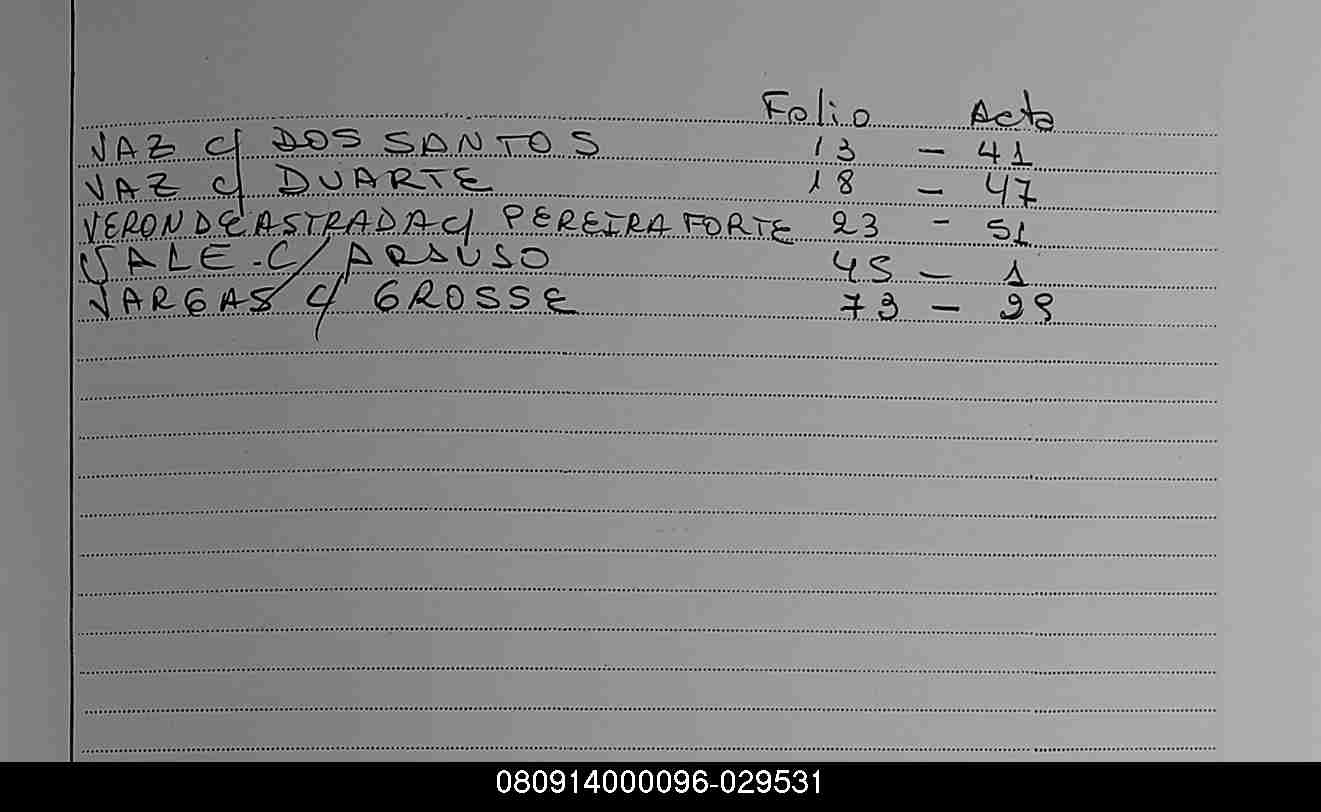 Folio Acta
VAZ c/ DOS SANTOS 13 - 41
VAZ c/ DUARTE 18 - 47
VERON DE ASTRADA c/ PEREIRA FORTE 23 - 51
VALE - C/ 45 - 1
VARGAS c/ GROSSE 73 - 29
080914000096-029531